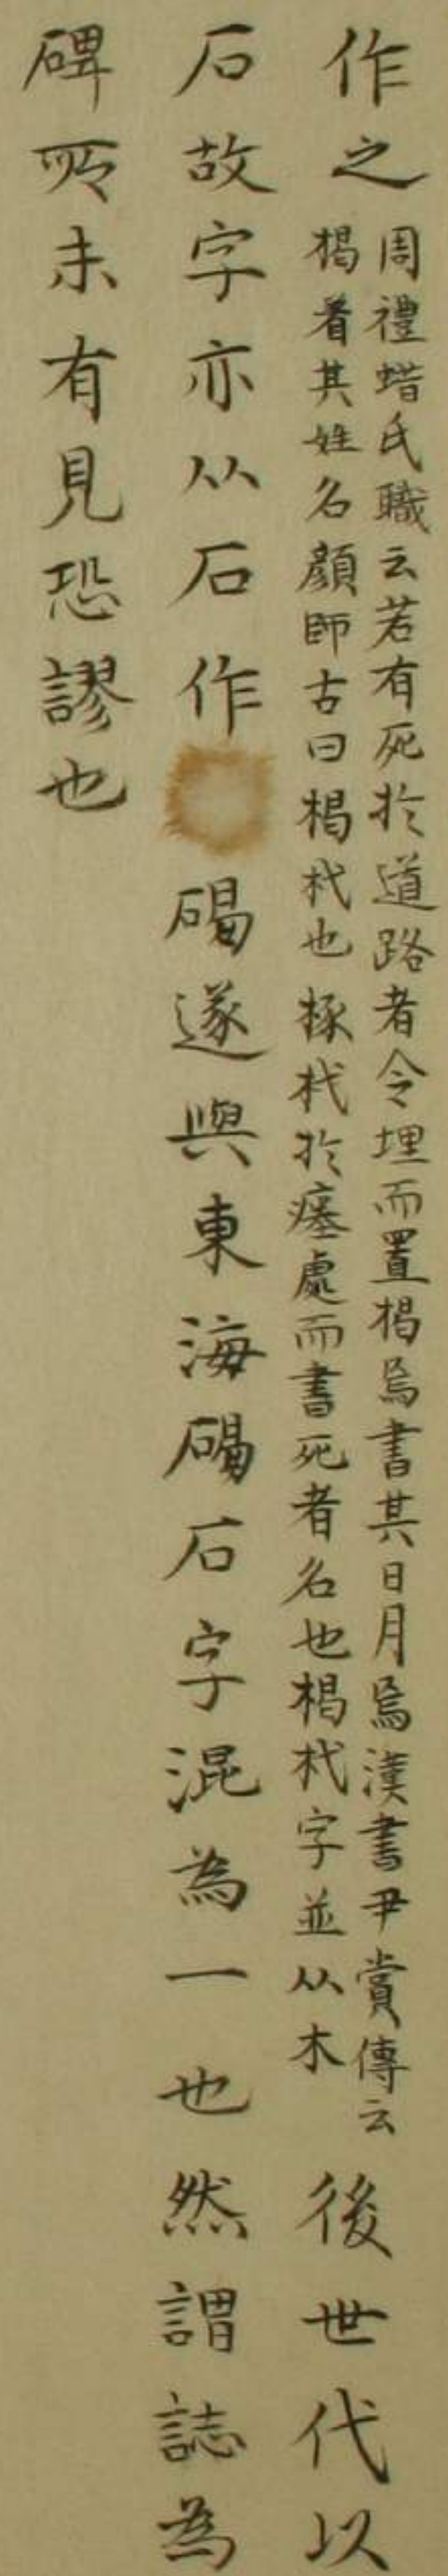 作之
周禮蜡氏職云若有死於道路者令埋而置楬焉書其日月焉漢書尹賞傳云
楬着其姓名顏師古曰楬杙也椓杙於瘞處而書死者名也楬杙字並从木
後世代以
石故字亦从石作碣遂與東海碣石字混為一也然謂誌為
碑所未有見恐謬也